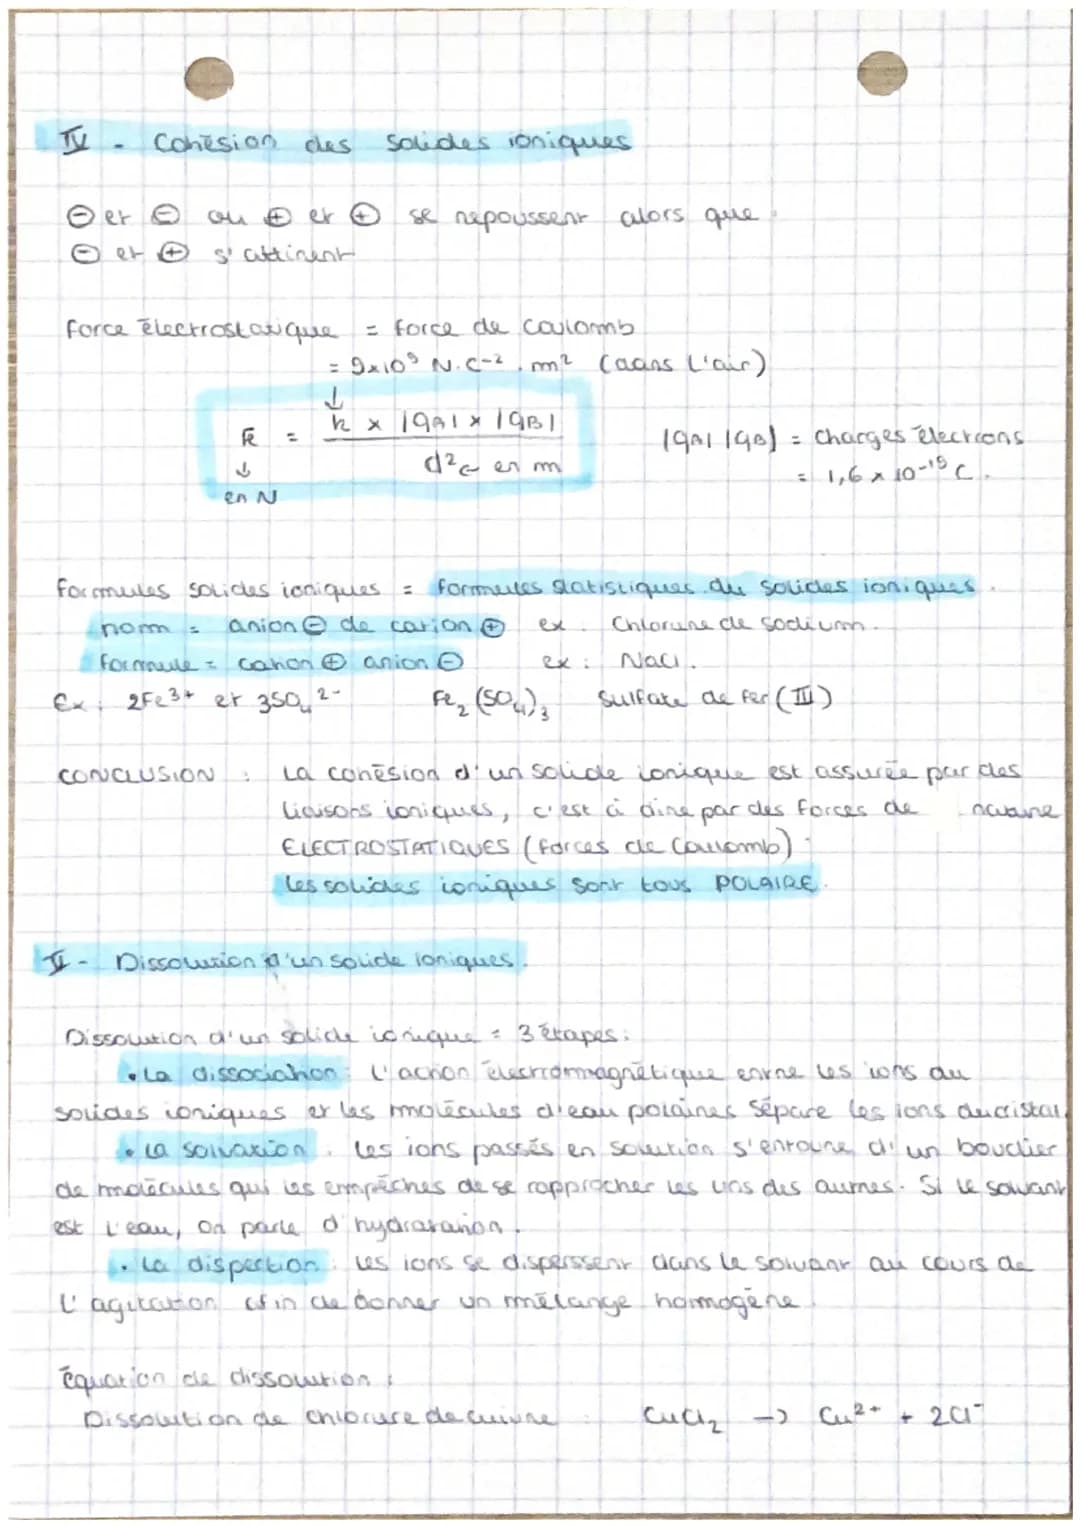 IV - Cohésion des solides ioniques
⊖ et ⊖ ou ⊕ et ⊕ se repoussent alors que
⊖ et ⊕ s'attirent
Force électrostatique = force de Coulomb
= 9x10⁹ N.C-². m² (dans l'air)
↓
Fe = k x |qA| x |qB| / d² ← en m
↓
en N
|qA| |qB| = charges électrons
= 1,6 x 10-¹⁹ C.
Formules solides ioniques = formules statistiques du solides ioniques.
nom = anion ⊖ de cation ⊕ ex : Chlorure de sodium.
formule = cation ⊕ anion ⊖ ex : NaCl.
Ex : 2Fe³⁺ et 3SO₄²⁻ Fe₂(SO₄)₃ Sulfate de Fer (III)
CONCLUSION : La cohésion d'un solide ionique est assurée par des
liaisons ioniques, c'est à dire par des forces de nature
ELECTROSTATIQUES (forces de Coulomb)
Les solides ioniques sont tous POLAIRE.
V - Dissolution d'un solide ioniques.
Dissolution d'un solide ionique = 3 étapes :
• La dissociation : L'action électromagnétique entre les ions du
solides ioniques et les molécules d'eau polaires sépare les ions du cristal.
• La solvation : les ions passés en solution s'entoure d'un bouclier
de molécules qui les empêches de se rapprocher les uns des autres. Si le solvant
est l'eau, on parle d'hydratation.
• La dispertion : les ions se disperssent dans le solvant au cours de
l'agitation afin de donner un mélange homogène.
Équation de dissolution :
Dissolution de chlorure de cuivre : CuCl₂ -> Cu²⁺ + 2Cl⁻